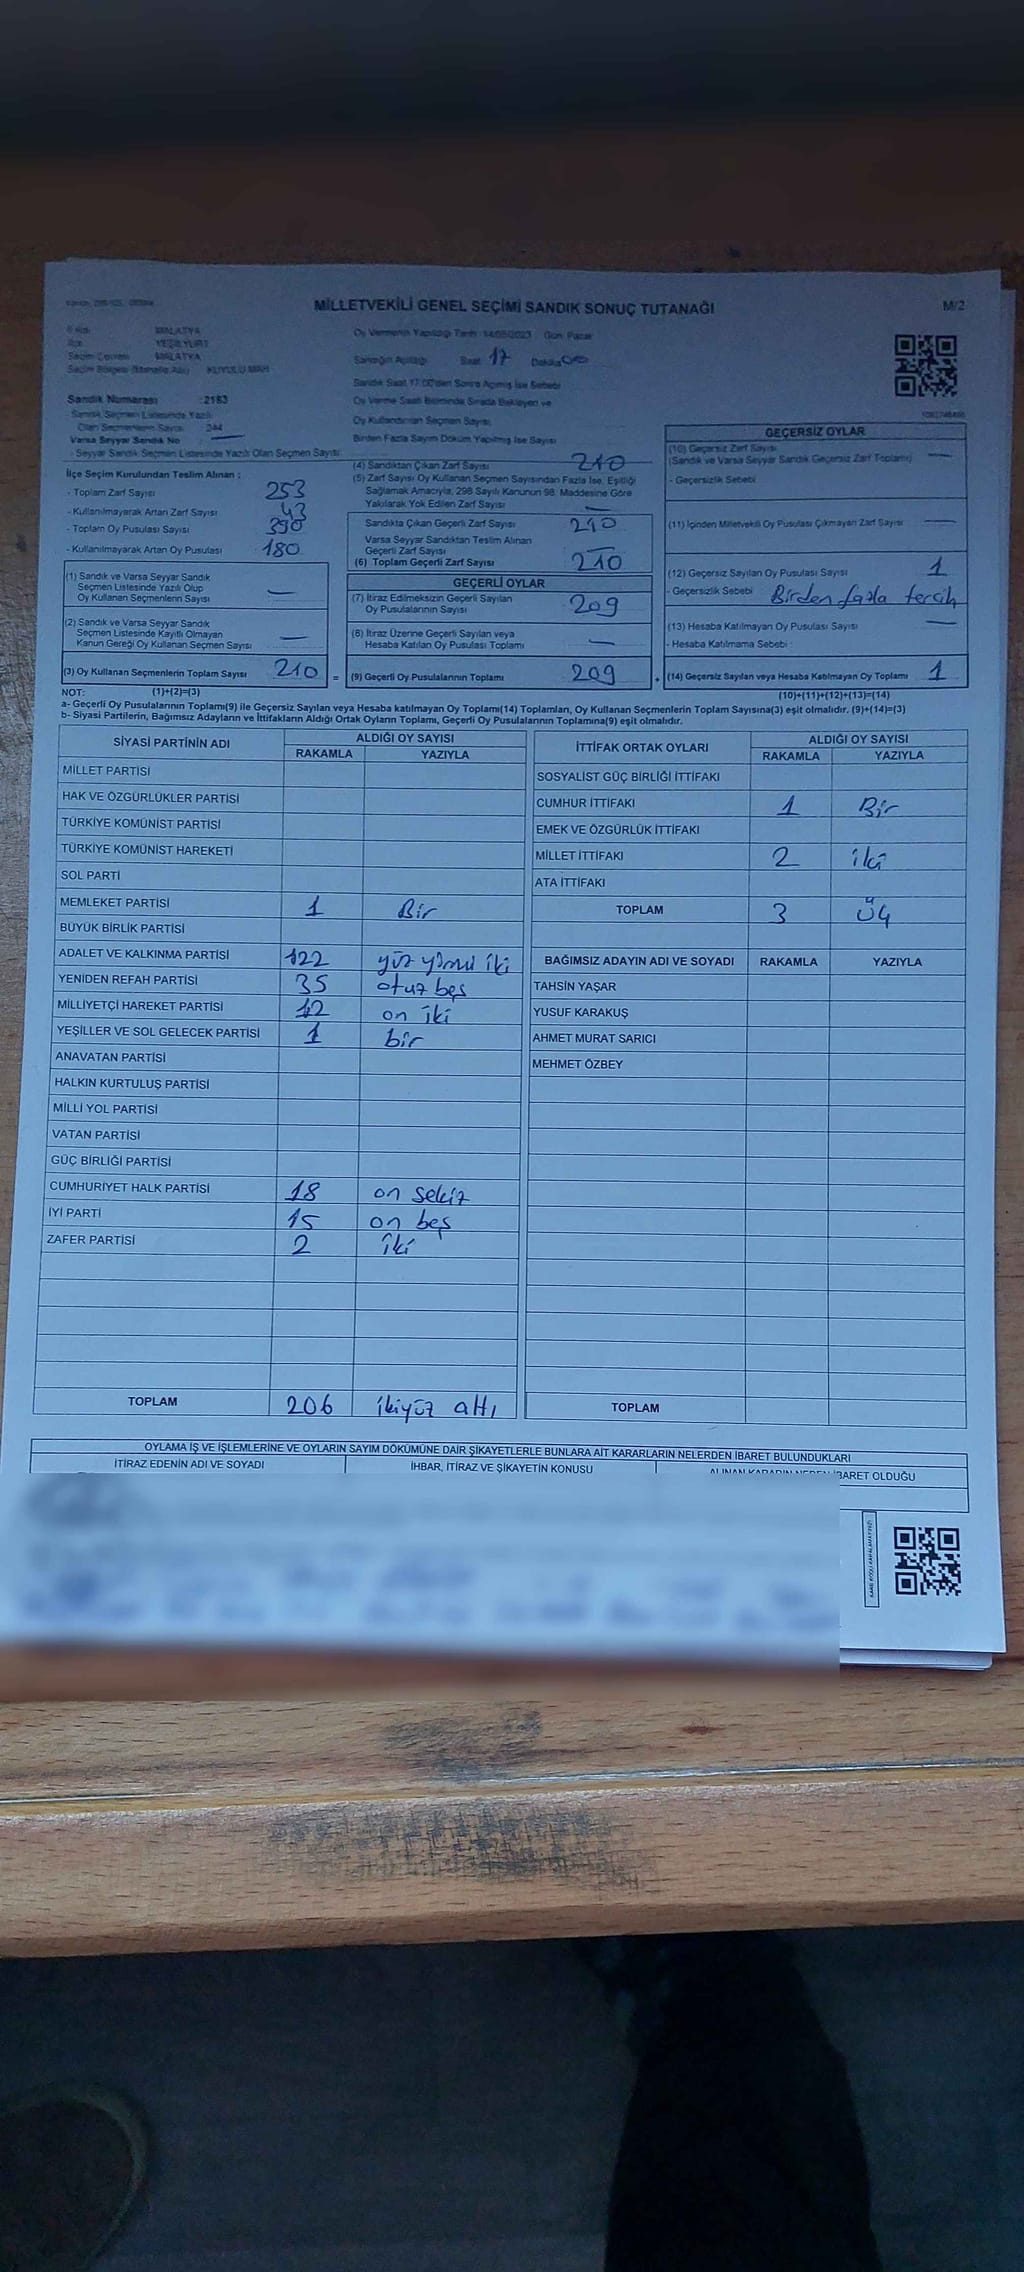 MİLLETVEKİLİ GENEL SEÇİMİ SANDIK SONUÇ TUTANAĞI
M/2
MALATYA
Oy Vermenin Yapıldığı Tarih 14/05/2023 Gün Pazar
YEŞİLYURT
Seçim Çevresi MALATYA
Sandığın Açıldığı Saat 17 Dakika
Seçim Bölgesi (Mahalle Adı) KUYULU MAH.
Sandık Saat 17:00'den Sonra Açılmış İse Sebebi
Sandık Numarası : 2183
Oy Verme Saati Bitiminde Sırada Bekleyen ve
Oy Kullandırılan Seçmen Sayısı
Sandık Seçmen Listesinde Yazılı
Olan Seçmenlerin Sayısı 244
Birden Fazla Sayım Döküm Yapılmış İse Sayısı
Varsa Seyyar Sandık No : —
- Seyyar Sandık Seçmen Listesinde Yazılı Olan Seçmen Sayısı
İlçe Seçim Kurulundan Teslim Alınan :
- Toplam Zarf Sayısı 253
- Kullanılmayarak Artan Zarf Sayısı 43
- Toplam Oy Pusulası Sayısı 390
- Kullanılmayarak Artan Oy Pusulası 180
(1) Sandık ve Varsa Seyyar Sandık
Seçmen Listesinde Yazılı Olup
Oy Kullanan Seçmenlerin Sayısı —
(2) Sandık ve Varsa Seyyar Sandık
Seçmen Listesinde Kayıtlı Olmayan
Kanun Gereği Oy Kullanan Seçmen Sayısı —
(3) Oy Kullanan Seçmenlerin Toplam Sayısı 210 =
(4) Sandıktan Çıkan Zarf Sayısı 210
(5) Zarf Sayısı Oy Kullanan Seçmen Sayısından Fazla İse, Eşitliği
Sağlamak Amacıyla, 298 Sayılı Kanunun 98. Maddesine Göre
Yakılarak Yok Edilen Zarf Sayısı —
Sandıkta Çıkan Geçerli Zarf Sayısı 210
Varsa Seyyar Sandıktan Teslim Alınan
Geçerli Zarf Sayısı —
(6) Toplam Geçerli Zarf Sayısı 210
GEÇERLİ OYLAR
(7) İtiraz Edilmeksizin Geçerli Sayılan
Oy Pusulalarının Sayısı 209
(8) İtiraz Üzerine Geçerli Sayılan veya
Hesaba Katılan Oy Pusulası Toplamı —
(9) Geçerli Oy Pusulalarının Toplamı 209
GEÇERSİZ OYLAR
(10) Geçersiz Zarf Sayısı
(Sandık ve Varsa Seyyar Sandık Geçersiz Zarf Toplamı) —
- Geçersizlik Sebebi
(11) İçinden Milletvekili Oy Pusulası Çıkmayan Zarf Sayısı —
(12) Geçersiz Sayılan Oy Pusulası Sayısı 1
- Geçersizlik Sebebi Birden fazla tercih
(13) Hesaba Katılmayan Oy Pusulası Sayısı —
- Hesaba Katılmama Sebebi :
(14) Geçersiz Sayılan veya Hesaba Katılmayan Oy Toplamı 1
NOT: (1)+(2)=(3)
(10)+(11)+(12)+(13)=(14)
a- Geçerli Oy Pusulalarının Toplamı(9) ile Geçersiz Sayılan veya Hesaba katılmayan Oy Toplamı(14) Toplamları, Oy Kullanan Seçmenlerin Toplam Sayısına(3) eşit olmalıdır. (9)+(14)=(3)
b- Siyasi Partilerin, Bağımsız Adayların ve İttifakların Aldığı Ortak Oyların Toplamı, Geçerli Oy Pusulalarının Toplamına(9) eşit olmalıdır.
SİYASİ PARTİNİN ADI ALDIĞI OY SAYISI
RAKAMLA YAZIYLA
MİLLET PARTİSİ
HAK VE ÖZGÜRLÜKLER PARTİSİ
TÜRKİYE KOMÜNİST PARTİSİ
TÜRKİYE KOMÜNİST HAREKETİ
SOL PARTİ
MEMLEKET PARTİSİ 1 Bir
BÜYÜK BİRLİK PARTİSİ
ADALET VE KALKINMA PARTİSİ 122 yüz yirmi iki
YENİDEN REFAH PARTİSİ 35 otuz beş
MİLLİYETÇİ HAREKET PARTİSİ 12 on iki
YEŞİLLER VE SOL GELECEK PARTİSİ 1 bir
ANAVATAN PARTİSİ
HALKIN KURTULUŞ PARTİSİ
MİLLİ YOL PARTİSİ
VATAN PARTİSİ
GÜÇ BİRLİĞİ PARTİSİ
CUMHURİYET HALK PARTİSİ 18 on sekiz
İYİ PARTİ 15 on beş
ZAFER PARTİSİ 2 iki
TOPLAM 206 ikiyüz altı
İTTİFAK ORTAK OYLARI ALDIĞI OY SAYISI
RAKAMLA YAZIYLA
SOSYALİST GÜÇ BİRLİĞİ İTTİFAKI
CUMHUR İTTİFAKI 1 Bir
EMEK VE ÖZGÜRLÜK İTTİFAKI
MİLLET İTTİFAKI 2 iki
ATA İTTİFAKI
TOPLAM 3 Üç
BAĞIMSIZ ADAYIN ADI VE SOYADI RAKAMLA YAZIYLA
TAHSİN YAŞAR
YUSUF KARAKUŞ
AHMET MURAT SARICI
MEHMET ÖZBEY
TOPLAM
OYLAMA İŞ VE İŞLEMLERİNE VE OYLARIN SAYIM DÖKÜMÜNE DAİR ŞİKAYETLERLE BUNLARA AİT KARARLARIN NELERDEN İBARET BULUNDUKLARI
İTİRAZ EDENİN ADI VE SOYADI İHBAR, İTİRAZ VE ŞİKAYETİN KONUSU ALINAN KARARIN NEDEN İBARET OLDUĞU